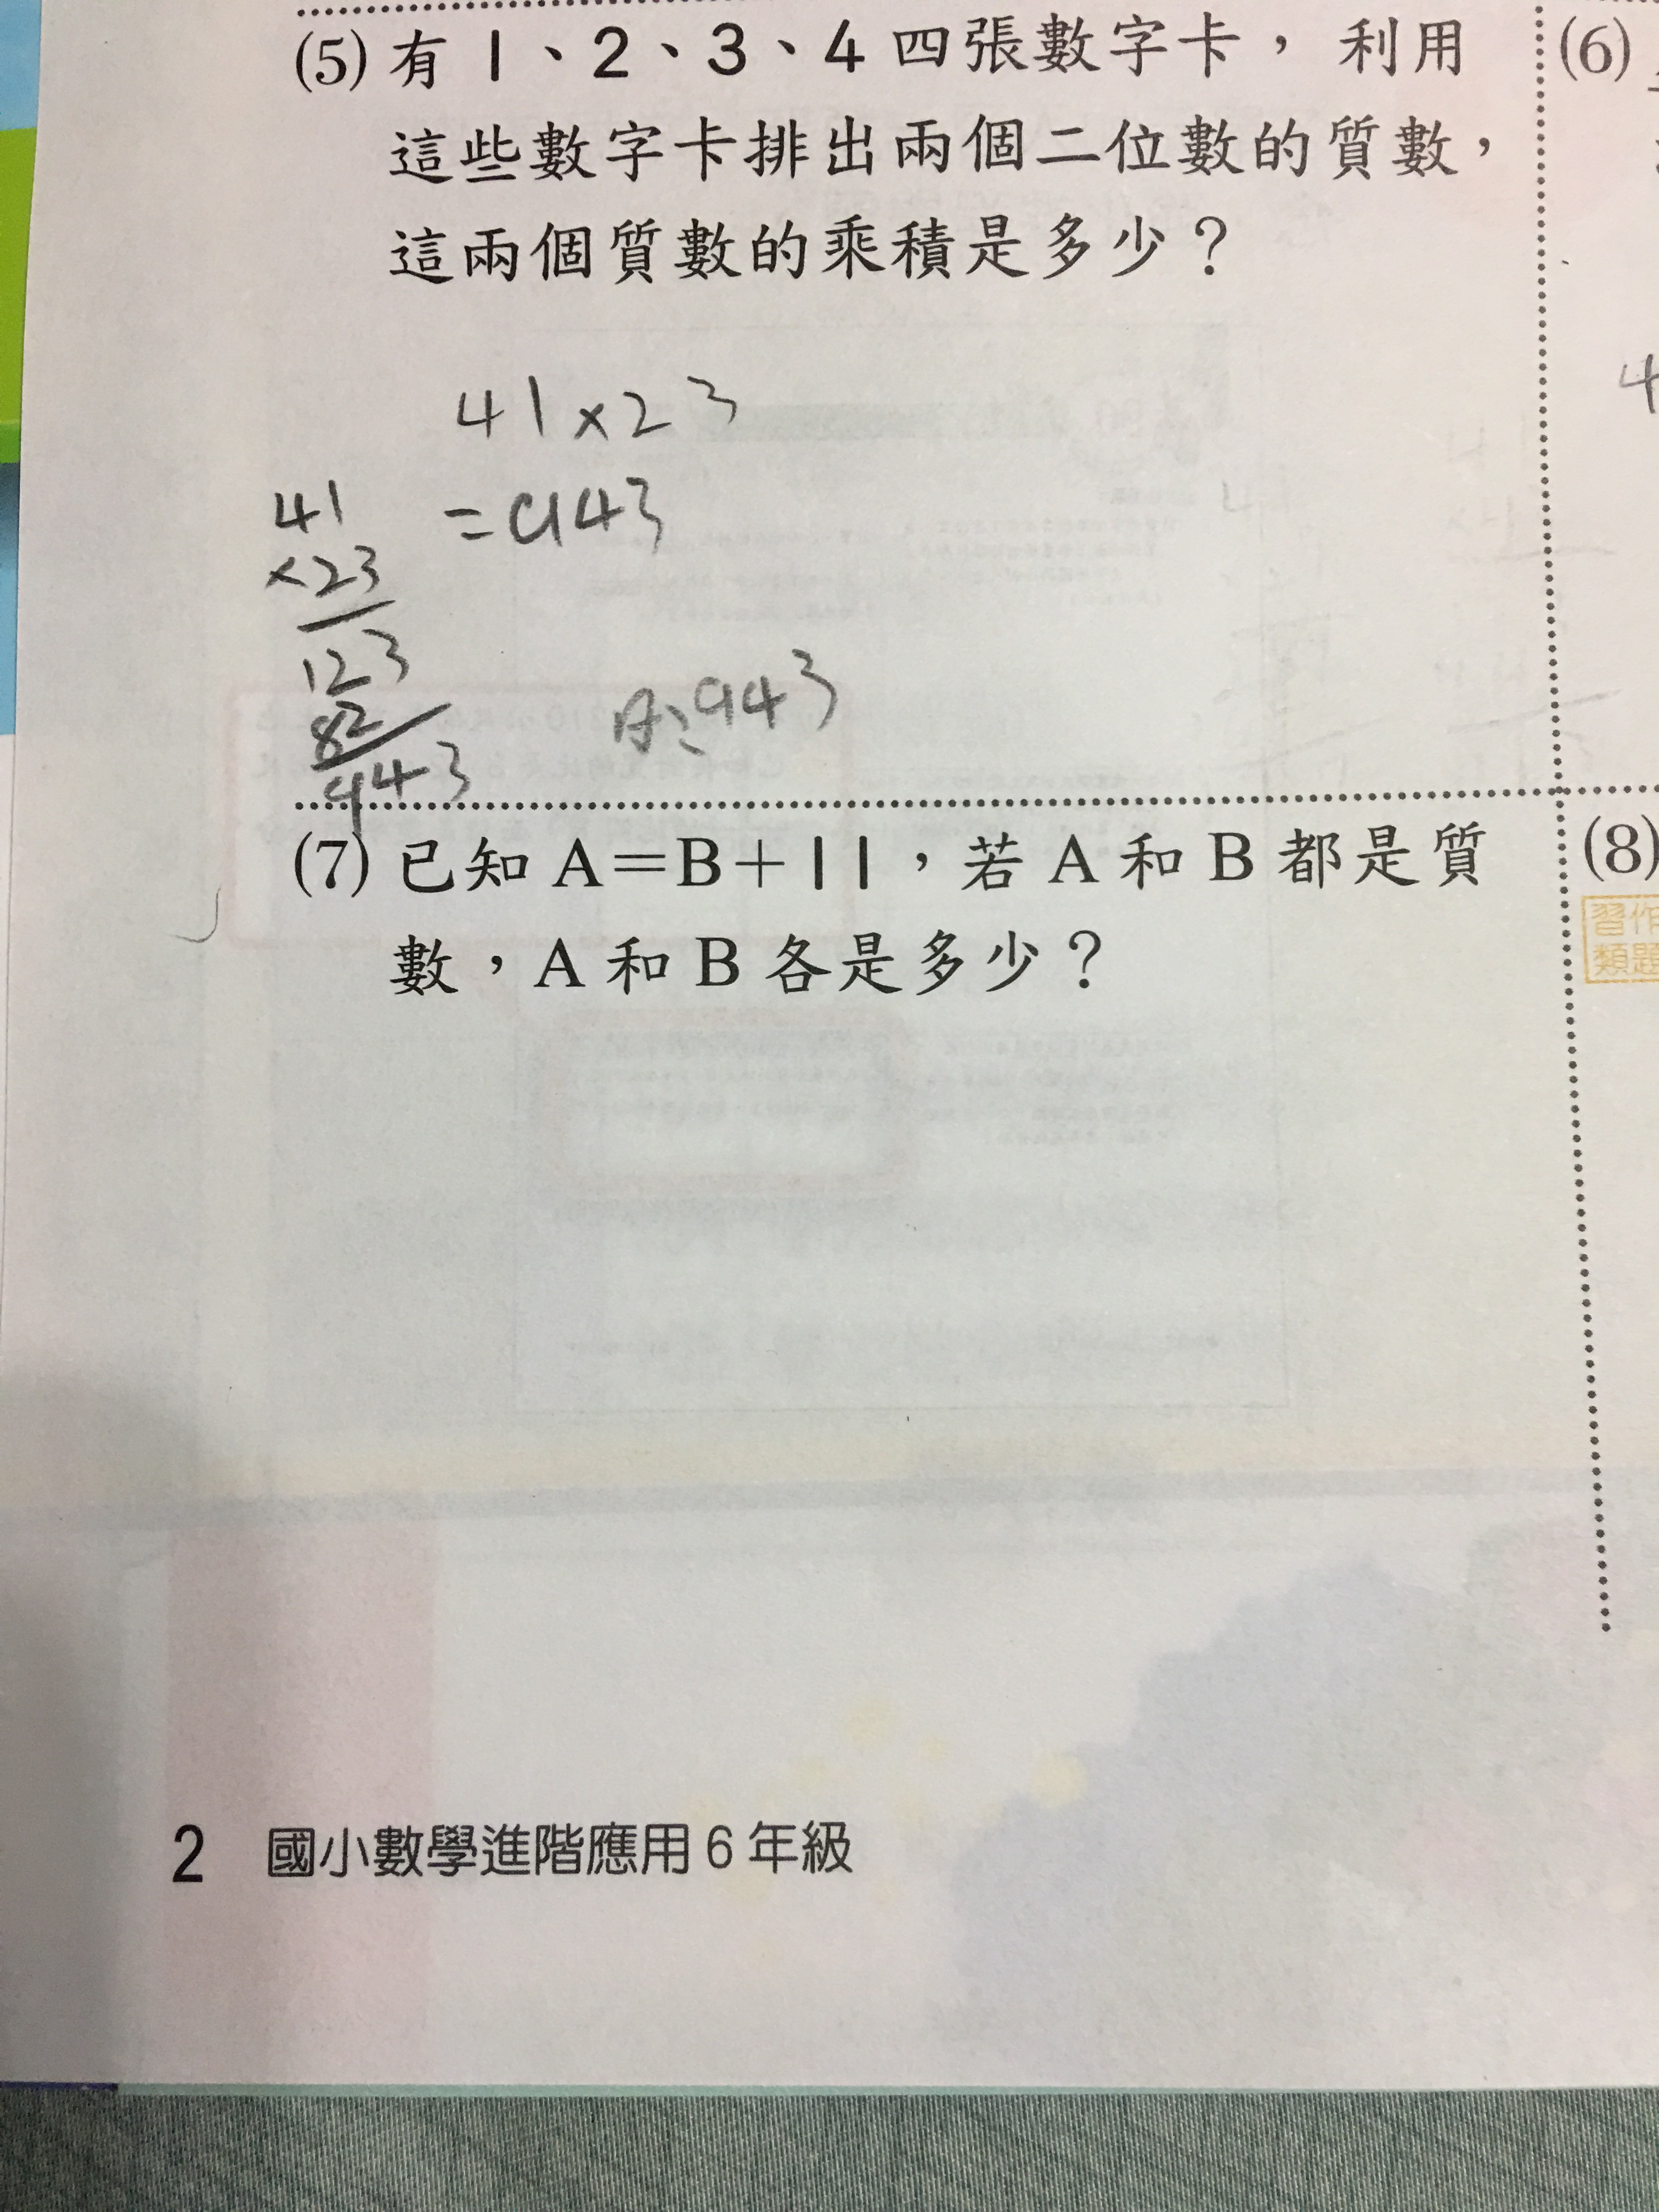 (5) 有 1、2、3、4 四張數字卡，利用
這些數字卡排出兩個二位數的質數，
這兩個質數的乘積是多少？
41×23
=943
41
×23
123
82
943
A:943
(7) 已知 A＝B＋11，若 A 和 B 都是質
數，A 和 B 各是多少？
(6)
4
(8)
習作
類題
2 國小數學進階應用6年級